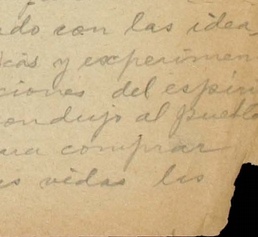 ado con las idea
icas y experimen
ciones del espíri
condujo al pueblo
para comprar
es vidas los